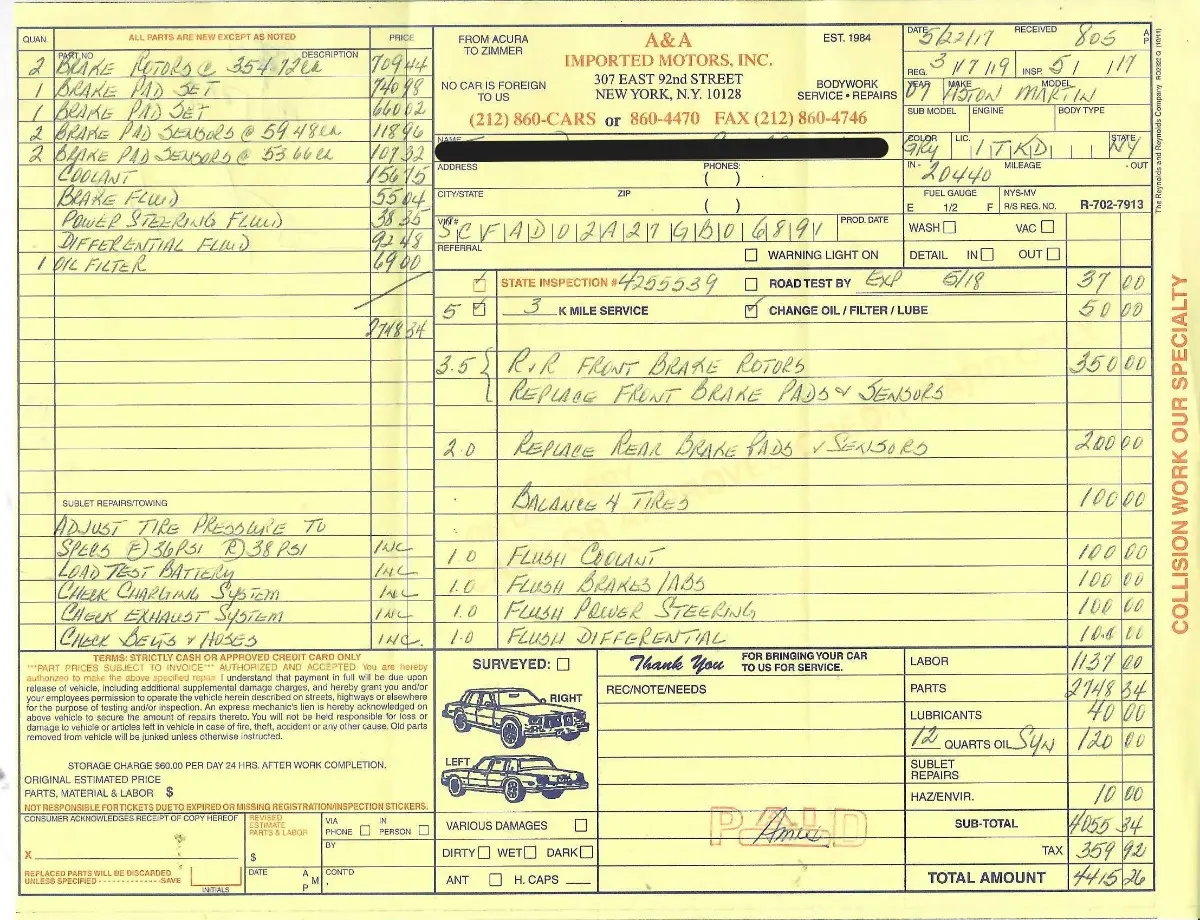 QUAN. ALL PARTS ARE NEW EXCEPT AS NOTED PRICE
PART NO DESCRIPTION
2 BRAKE ROTORS @ 354.72 ea 709 44
1 BRAKE PAD SET 740 98
1 BRAKE PAD SET 660 02
2 BRAKE PAD SENSORS @ 59 48 ea 118 96
2 BRAKE PAD SENSORS @ 53 66 ea 107 32
COOLANT 156 75
BRAKE FLUID 55 04
POWER STEERING FLUID 38 35
DIFFERENTIAL FLUID 92 48
1 OIL FILTER 69 00
2748 34
SUBLET REPAIRS/TOWING
ADJUST TIRE PRESSURE TO
SPECS F) 36 PSI R) 38 PSI INC
LOAD TEST BATTERY INC
CHECK CHARGING SYSTEM INC
CHECK EXHAUST SYSTEM INC
CHECK BELTS & HOSES INC.
FROM ACURA
TO ZIMMER
NO CAR IS FOREIGN
TO US
A&A
IMPORTED MOTORS, INC.
307 EAST 92nd STREET
NEW YORK, N.Y. 10128
EST. 1984
BODYWORK
SERVICE • REPAIRS
(212) 860-CARS or 860-4470 FAX (212) 860-4746
NAME
ADDRESS PHONES:
( )
CITY/STATE ZIP
( )
VIN# SCFAD02A27GB06891 PROD. DATE
REFERRAL WARNING LIGHT ON
DATE 5/22/17 RECEIVED 805 A P
REG. 3/17/19 INSP. 5/ /17
YEAR 07 MAKE ASTON MODEL MARTIN
SUB MODEL ENGINE BODY TYPE
COLOR GRY LIC. 1TKD STATE NY
IN - 20440 MILEAGE - OUT
FUEL GAUGE NYS-MV
E 1/2 F R/S REG. NO. R-702-7913
WASH VAC
DETAIL IN OUT
STATE INSPECTION # 4255539 ROAD TEST BY EXP 5/18 37 00
5 3 K MILE SERVICE CHANGE OIL / FILTER / LUBE 50 00
3.5 R & R FRONT BRAKE ROTORS 350 00
REPLACE FRONT BRAKE PADS & SENSORS
2.0 REPLACE REAR BRAKE PADS & SENSORS 200 00
BALANCE 4 TIRES 100 00
1.0 FLUSH COOLANT 100 00
1.0 FLUSH BRAKES/ABS 100 00
1.0 FLUSH POWER STEERING 100 00
1.0 FLUSH DIFFERENTIAL 100 00
TERMS: STRICTLY CASH OR APPROVED CREDIT CARD ONLY
***PART PRICES SUBJECT TO INVOICE*** AUTHORIZED AND ACCEPTED. You are hereby
authorized to make the above specified repair. I understand that payment in full will be due upon
release of vehicle, including additional supplemental damage charges, and hereby grant you and/or
your employees permission to operate the vehicle herein described on streets, highways or elsewhere
for the purpose of testing and/or inspection. An express mechanic's lien is hereby acknowledged on
above vehicle to secure the amount of repairs thereto. You will not be held responsible for loss or
damage to vehicle or articles left in vehicle in case of fire, theft, accident or any other cause. Old parts
removed from vehicle will be junked unless otherwise instructed.
STORAGE CHARGE $60.00 PER DAY 24 HRS. AFTER WORK COMPLETION.
ORIGINAL ESTIMATED PRICE
PARTS, MATERIAL & LABOR $
NOT RESPONSIBLE FOR TICKETS DUE TO EXPIRED OR MISSING REGISTRATION/INSPECTION STICKERS.
CONSUMER ACKNOWLEDGES RECEIPT OF COPY HEREOF
X
REPLACED PARTS WILL BE DISCARDED
UNLESS SPECIFIED - - - - - - - - - - - - - - -SAVE
INITIALS
REVISED
ESTIMATE
PARTS & LABOR
$
VIA PHONE IN PERSON
BY
DATE A M P CONT'D
SURVEYED:
RIGHT
LEFT
VARIOUS DAMAGES
DIRTY WET DARK
ANT H. CAPS
Thank You FOR BRINGING YOUR CAR
TO US FOR SERVICE.
REC/NOTE/NEEDS
PAID
LABOR 1137 00
PARTS 2748 34
LUBRICANTS 40 00
12 QUARTS OIL SYN 120 00
SUBLET
REPAIRS
HAZ/ENVIR. 10 00
SUB-TOTAL 4055 34
TAX 359 92
TOTAL AMOUNT 4415 26
COLLISION WORK OUR SPECIALTY
The Reynolds and Reynolds Company RO2922 Q (10/11)